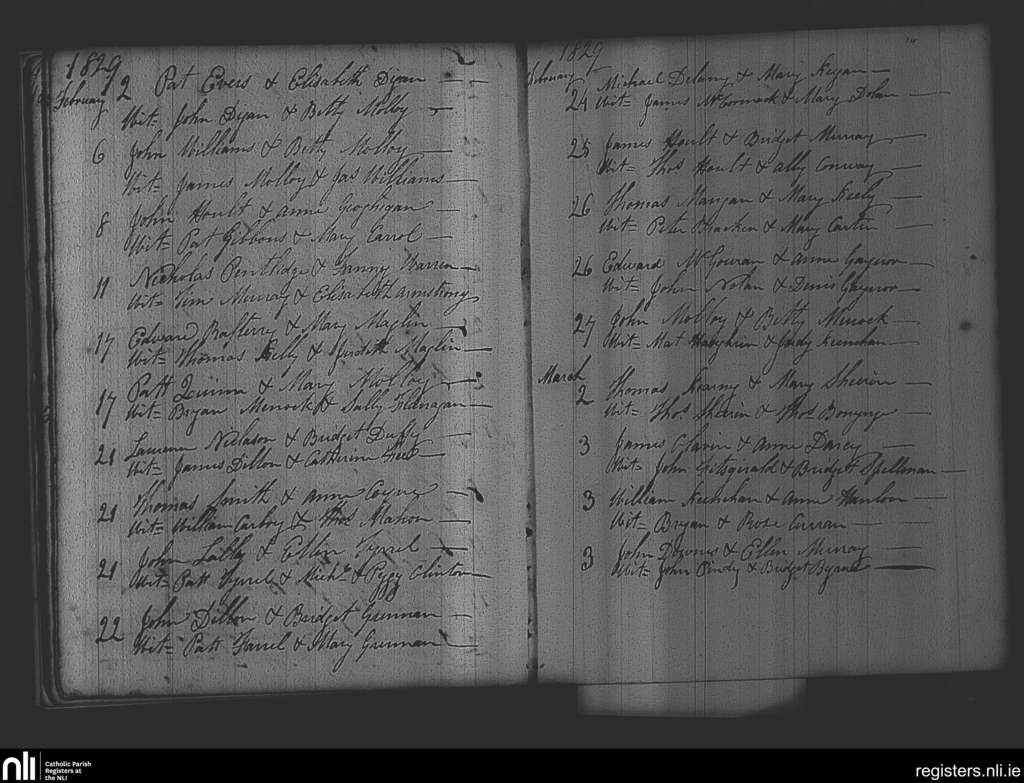 1829
February 2 Pat Evers & Elisabeth Dijan
Wit= John Dijan & Betty Molloy
6 John Williams & Betty Molloy
Wit= James Molloy & Jas Williams
8 John Hoult & Anne Geoghigan
Wit= Pat Gibbons & Mary Carrol
11 Nicholas Pentlidge & Fanny Warren
Wit= Tim Murray & Elisabeth Armstrong
17 Edward Rafterry & Mary Maglin
Wit= Thomas Kelly & Judith Maglin
17 Patt Quinn & Mary Molloy
Wit= Bryan Menock & Sally Flanagan
21 Laurence & Bridget Duffy
Wit= James Dillon & Catherine
21 Thomas Smith & Anne Coyne
Wit= William Carboy & Thos Mahon
21 John Lally & Ellin Tyrrel
Wit= Patt Tyrrel & Mich. & Peggy Clinton
22 John Dillon & Bridget Grennan
Wit= Patt Farrel & Mary Grennan
1829
February 24 Michael Delamy & Mary Keegan
Wit= James McCormack & Mary Dolan
25 James Hoult & Bridget Murray
Wit= Thos Hoult & Ally Conway
26 Thomas Mangan & Mary Keely
Wit= Peter Bracken & Mary Carter
26 Edward McGouran & Anne Gaynor
Wit= John Nolan & Denis Gaynor
27 John Molloy & Betty Menock
Wit= Mat & Judy Keenehan
March
2 Thomas Kearny & Mary Sherin
Wit= Thos Sherin & Thos Bonynge
3 James Glavin & Anne Darcy
Wit= John Fitsgerald & Bridget Spellman
3 William Keenehan & Anne Hanlon
Wit= Bryan & Rose Curran
3 John Downes & Ellen Murray
Wit= John Pindy & Bridget Byrne
nli
Catholic Parish
Registers at
the NLI
registers.nli.ie